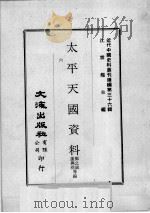 近代中國史料叢刊續編第三十六輯
沈雲龍主編
太平天國資料
文海出版社有限公司印行